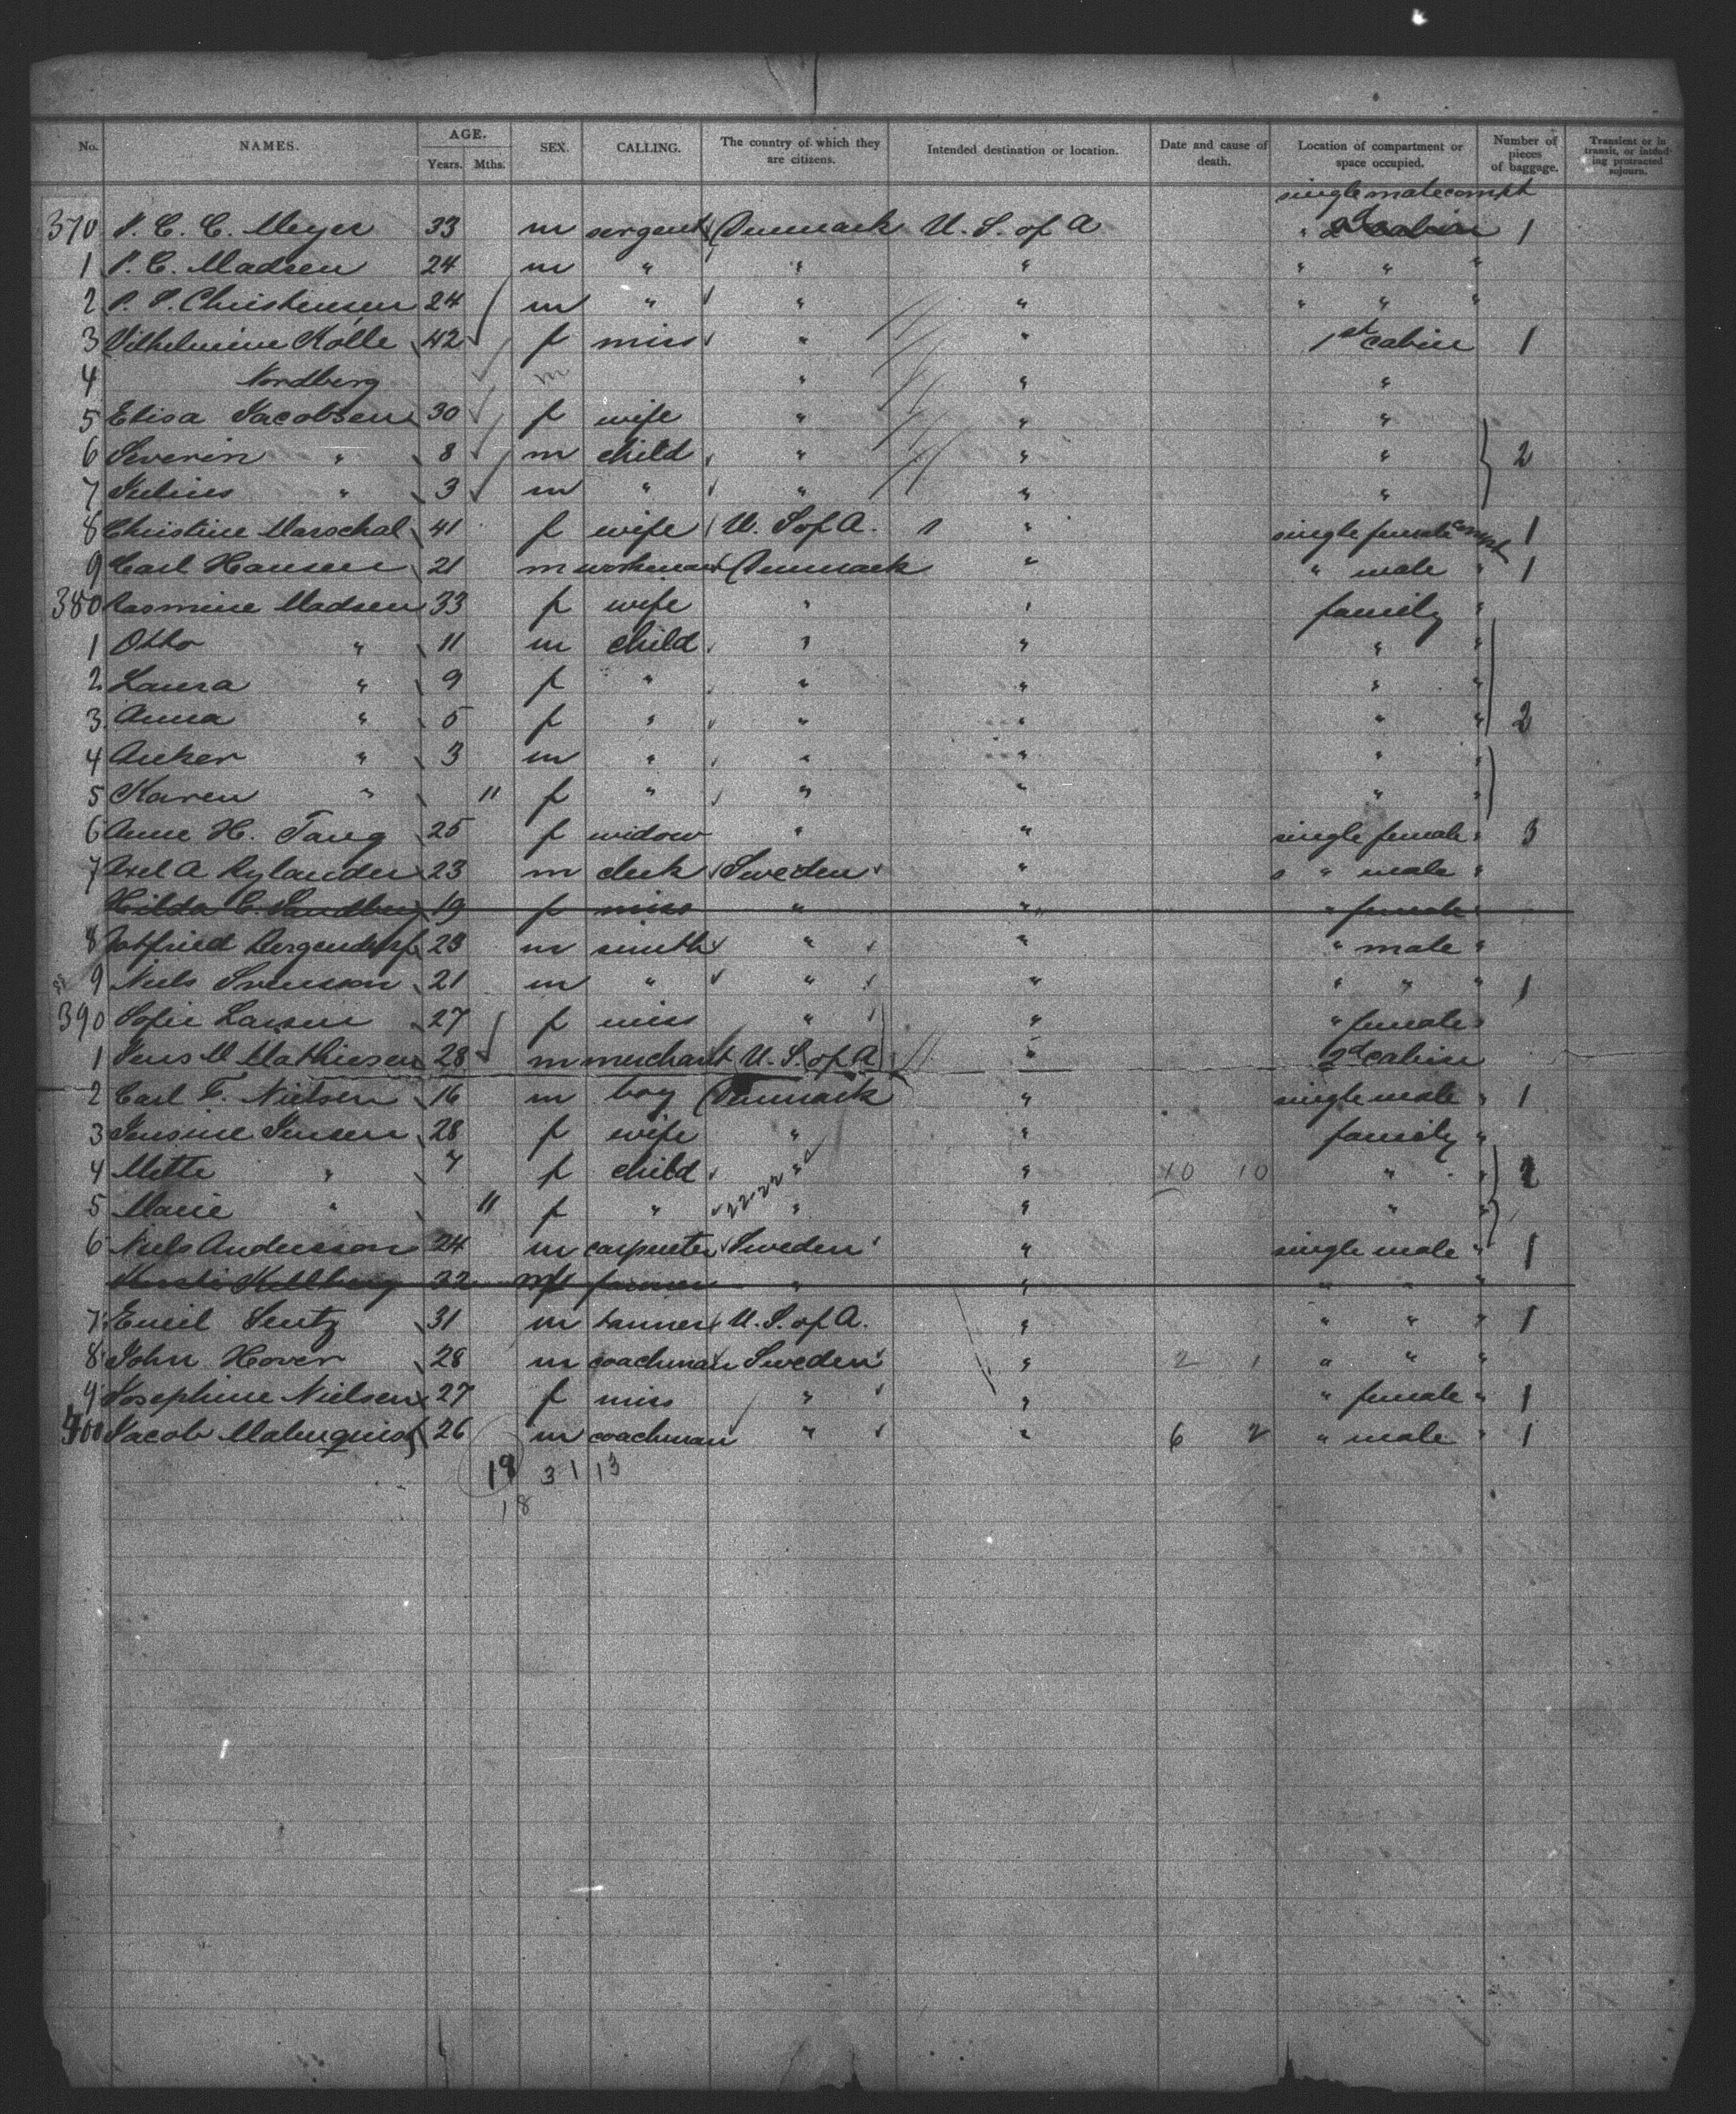 No. NAMES. AGE. Years. Mths. SEX. CALLING. The country of which they are citizens. Intended destination or location. Date and cause of death. Location of compartment or space occupied. Number of pieces of baggage. Transient or in transit, or intending protracted sojourn.
single male compt
370 P. C. C. Meyer 33 m sergent Denmark U. S. of A " 1
1 P. C. Madsen 24 m " " " " " "
2 P. P. Christensen 24 m " " " " " "
3 Vilhelmine Kolle 42 f miss " " 1st cabin 1
4 Nordberg m " " "
5 Elisa Jacobsen 30 f wife " " "
6 Severin " 8 m child " " " 2
7 Julius " 3 m " " " "
8 Christine Marschal 41 f wife U. S of A. 1 " single female compt 1
9 Carl Hansen 21 m workman Denmark " " male " 1
380 Rasmine Madsen 33 f wife " " family "
1 Otto " 11 m child " " " "
2 Laura " 9 f " " " " "
3 Anna " 5 f " " " " " 2
4 Anker " 3 m " " " " "
5 Karen " 11 f " " " " "
6 Anne H. Tang 25 f widow " " single female " 3
7 Axel A Rylander 23 m clerk Sweden " " male "
Hilda C. Sandberg 19 f miss " " " female "
8 Gotfried Bergendorf 23 m smith " " " male "
9 Niels Svensson 21 m " " " " " " 1
390 Sofie Larsen 27 f miss " " " female "
1 Jens M Mathiesen 28 m merchant U. S. of A " 2d cabin
2 Carl F. Nielsen 16 m boy Denmark " single male " 1
3 Jensine Jensen 28 f wife " " family "
4 Mette " 7 f child " " 10 10 " " 2
5 Marie " 11 f " " " " "
6 Niels Andersson 24 m carpenter Sweden " single male " 1
32 farmer " " " " "
7 Emil Lentz 31 m tanner U. S. of A. " " " " 1
8 John Hover 28 m coachman Sweden " 2 1 " " "
9 Josephine Nielsen 27 f miss " " " female " 1
400 Jacob Malmquist 26 m coachman " " 6 2 " male " 1
19 3 1 13
18